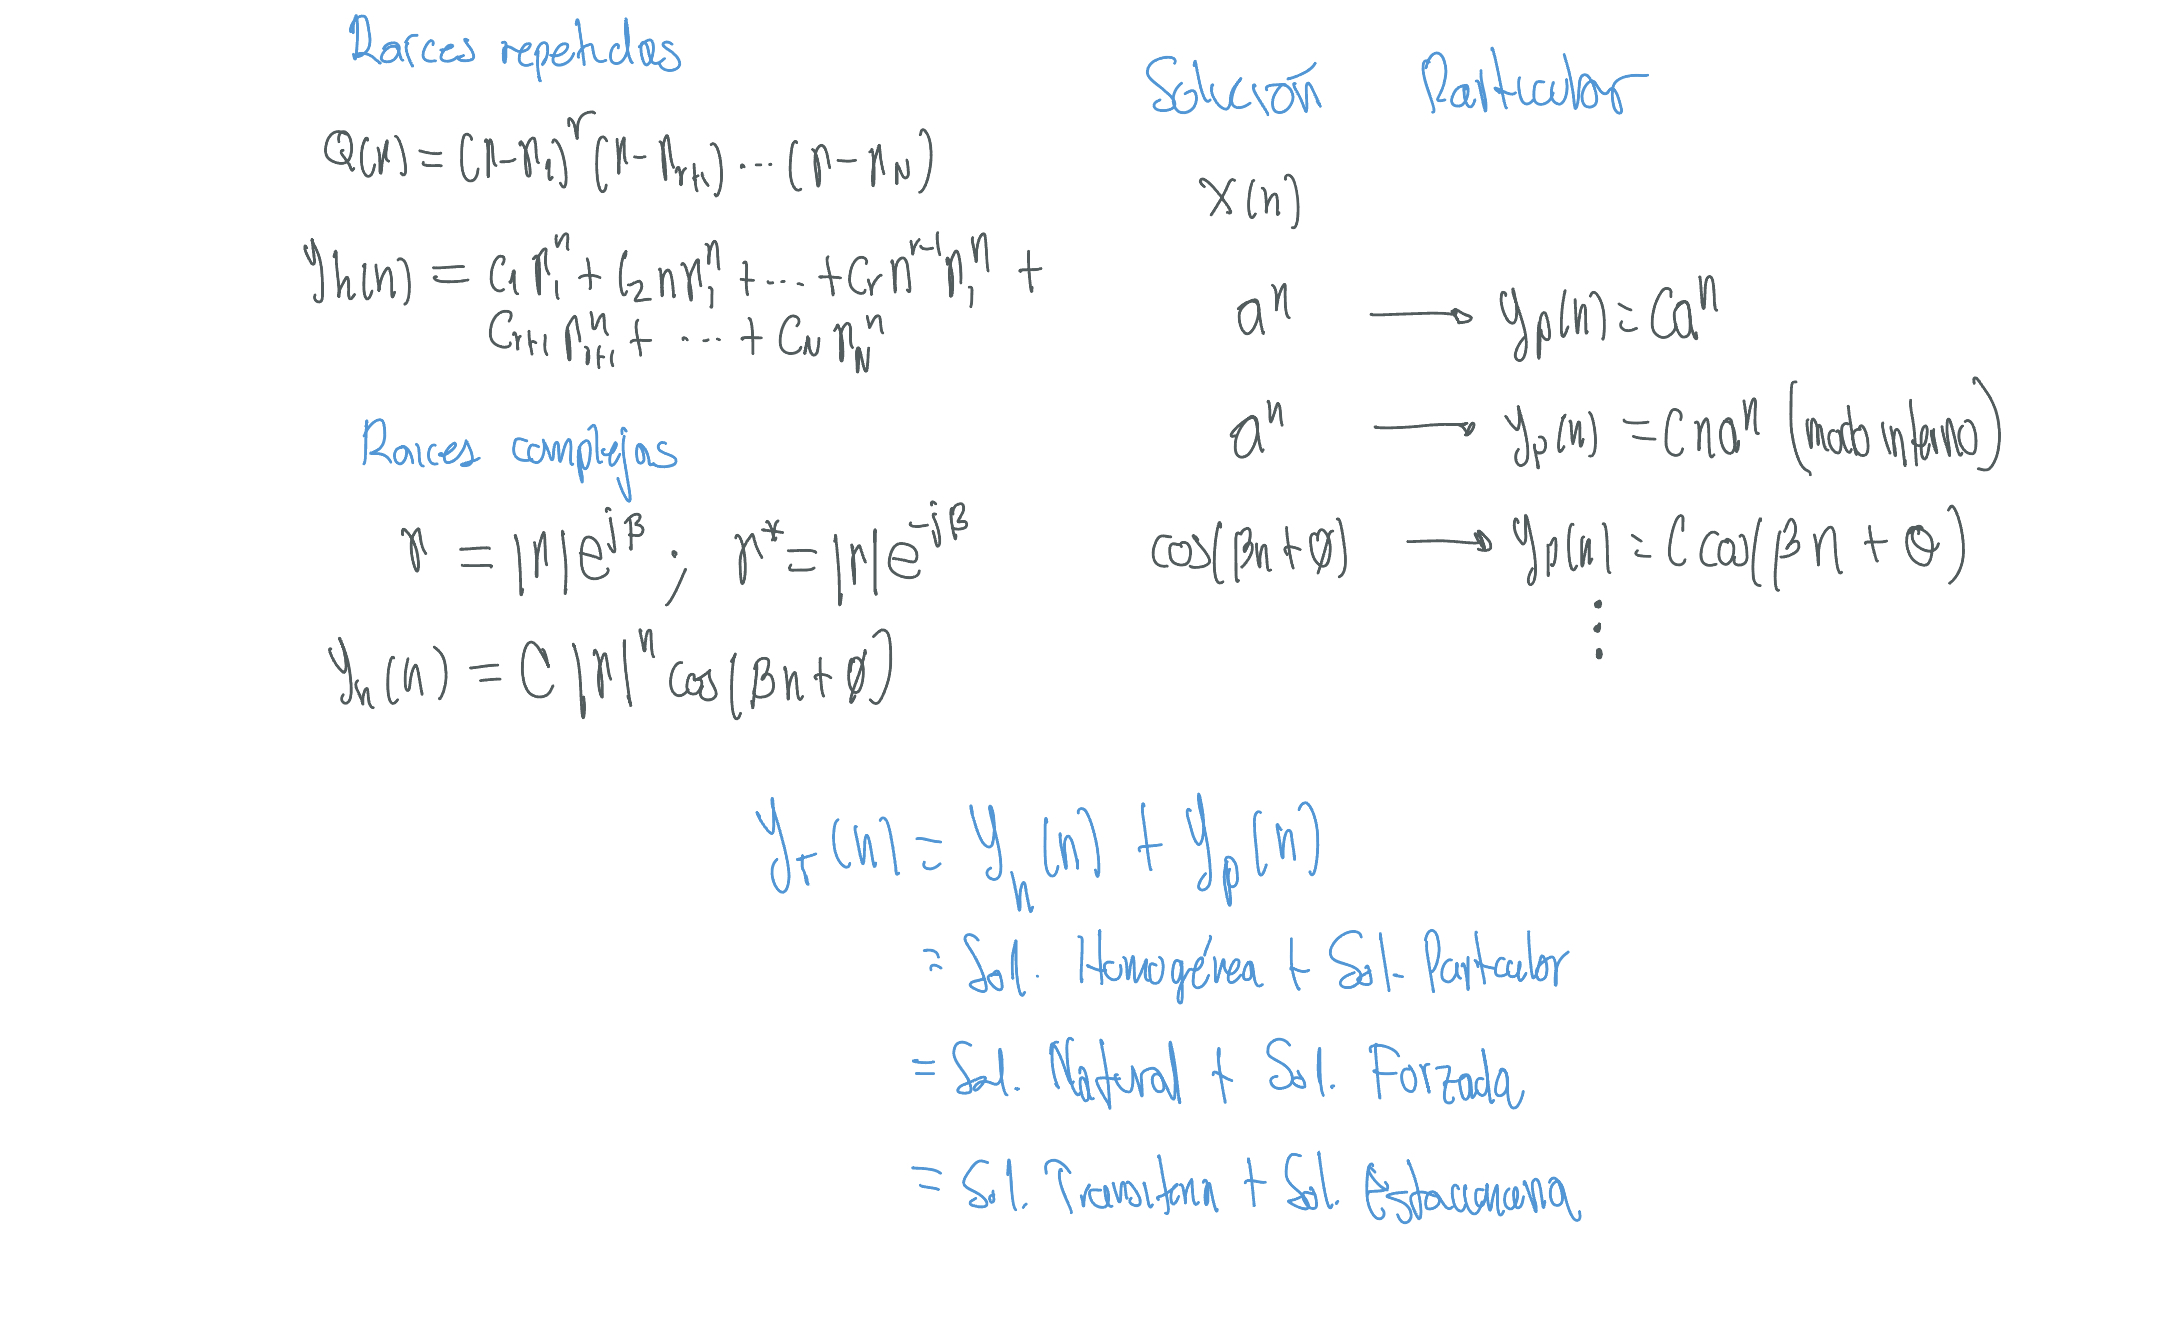 Raíces repetidas
Q(r) = (r-r₁)^r (r-r_{r+1}) ... (r-r_N)
y_h(n) = c₁ r₁^n + c₂ n r₁^n + ... + c_r n^{r-1} r₁^n +
c_{r+1} r_{r+1}^n + ... + c_N r_N^n
Raíces complejas
r = |r|e^{jβ} ; r* = |r|e^{-jβ}
y_h(n) = C |r|^n cos(βn+ϕ)
Solución Particular
x(n)
a^n → y_p(n) = Ca^n
a^n → y_p(n) = Cna^n (modo interno)
cos(βn+ϕ) → y_p(n) = C cos(βn + θ)
⋮
y_T(n) = y_h(n) + y_p(n)
= Sol. Homogénea + Sol. Particular
= Sol. Natural + Sol. Forzada
= Sol. Transitoria + Sol. Estacionaria